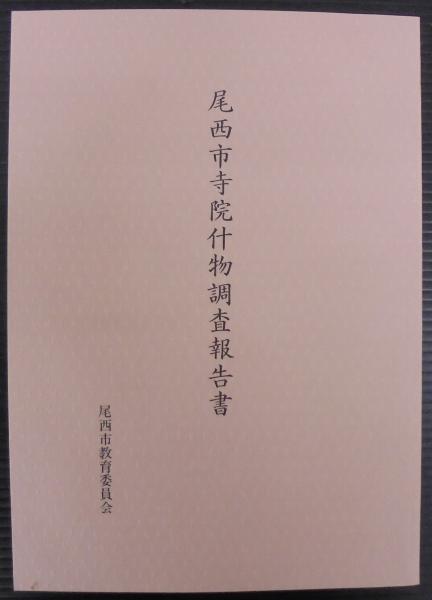 尾西市寺院什物調査報告書
尾西市教育委員会